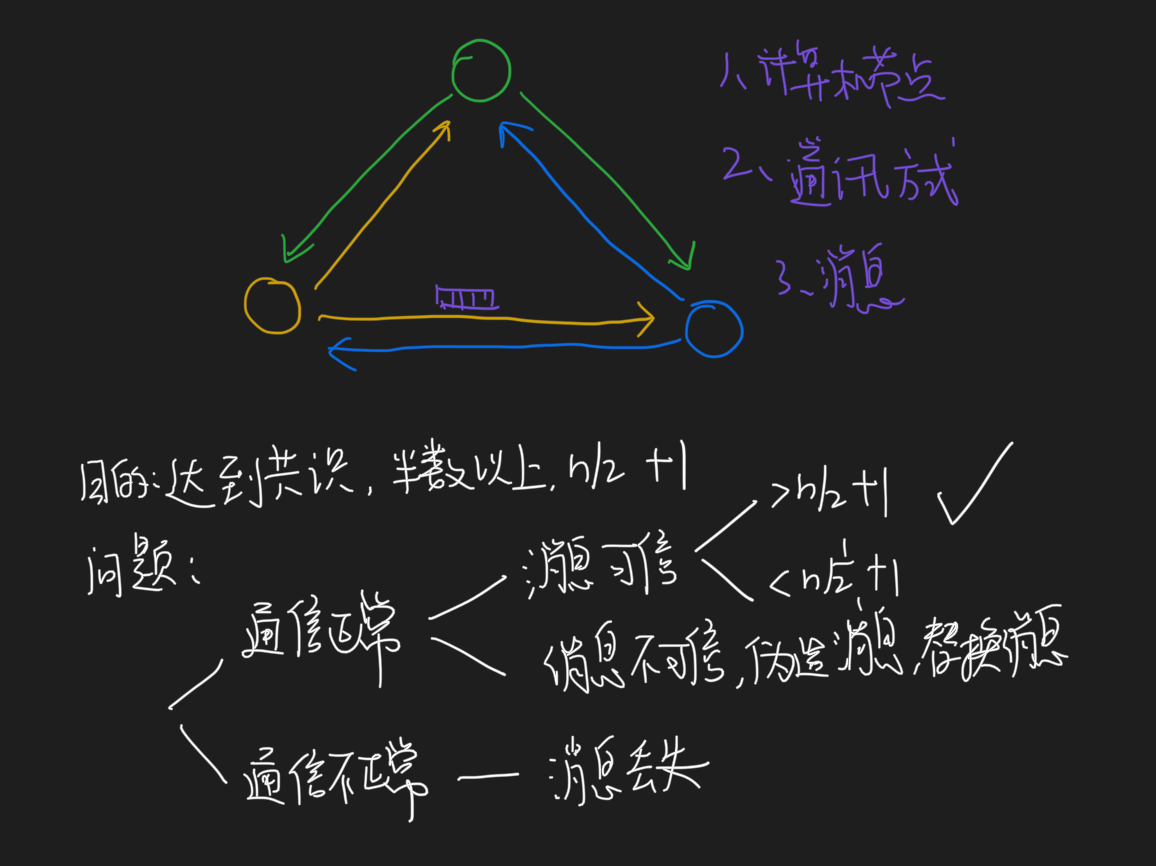 1、计算机节点
2、通讯方式
3、消息
目的:达到共识,半数以上,n/2 +1
问题:
通信正常
消息可信
>n/2+1
<n/2+1
消息不可信,伪造消息,替换消息
通信不正常 — 消息丢失